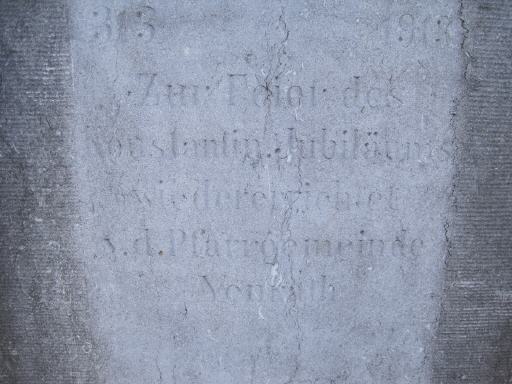 313 1913
Zur Feier des
Konstantin. Jubiläums
wiedererrichtet
v. d. Pfarrgemeinde